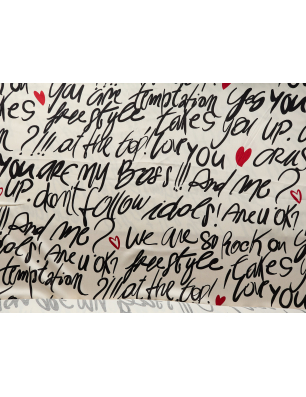 you are temptation yes you
takes freestyle takes you up.
?!!! at the top! love you crush
you are my Boss!!! And me?
up. don't follow idols! Are u ok!
And me? we are so rock on
idols! Are u ok! freestyle takes
temptation ?!!! at the top! love you